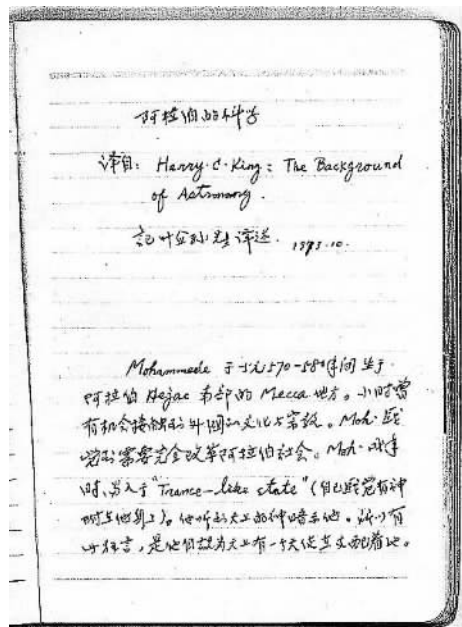 阿拉伯的科学
译自: Henry·C·King: The Background
of Astronomy.
記叶企孙先生译述. 1973.10.
Mohammede 于公元570-580年间生于
阿拉伯 Hejac 南部的 Mecca 地方。小时曾
有机会接触到外国的文化与宗教。Moh. 感
觉到需要完全改革阿拉伯社会。Moh. 成年
时,易入于"Trance-like state"(自己感觉有神
附在他身上)。他听到天上的神暗示他。所以有
此狂言,是他自认为天上有一个天使在支配着他。